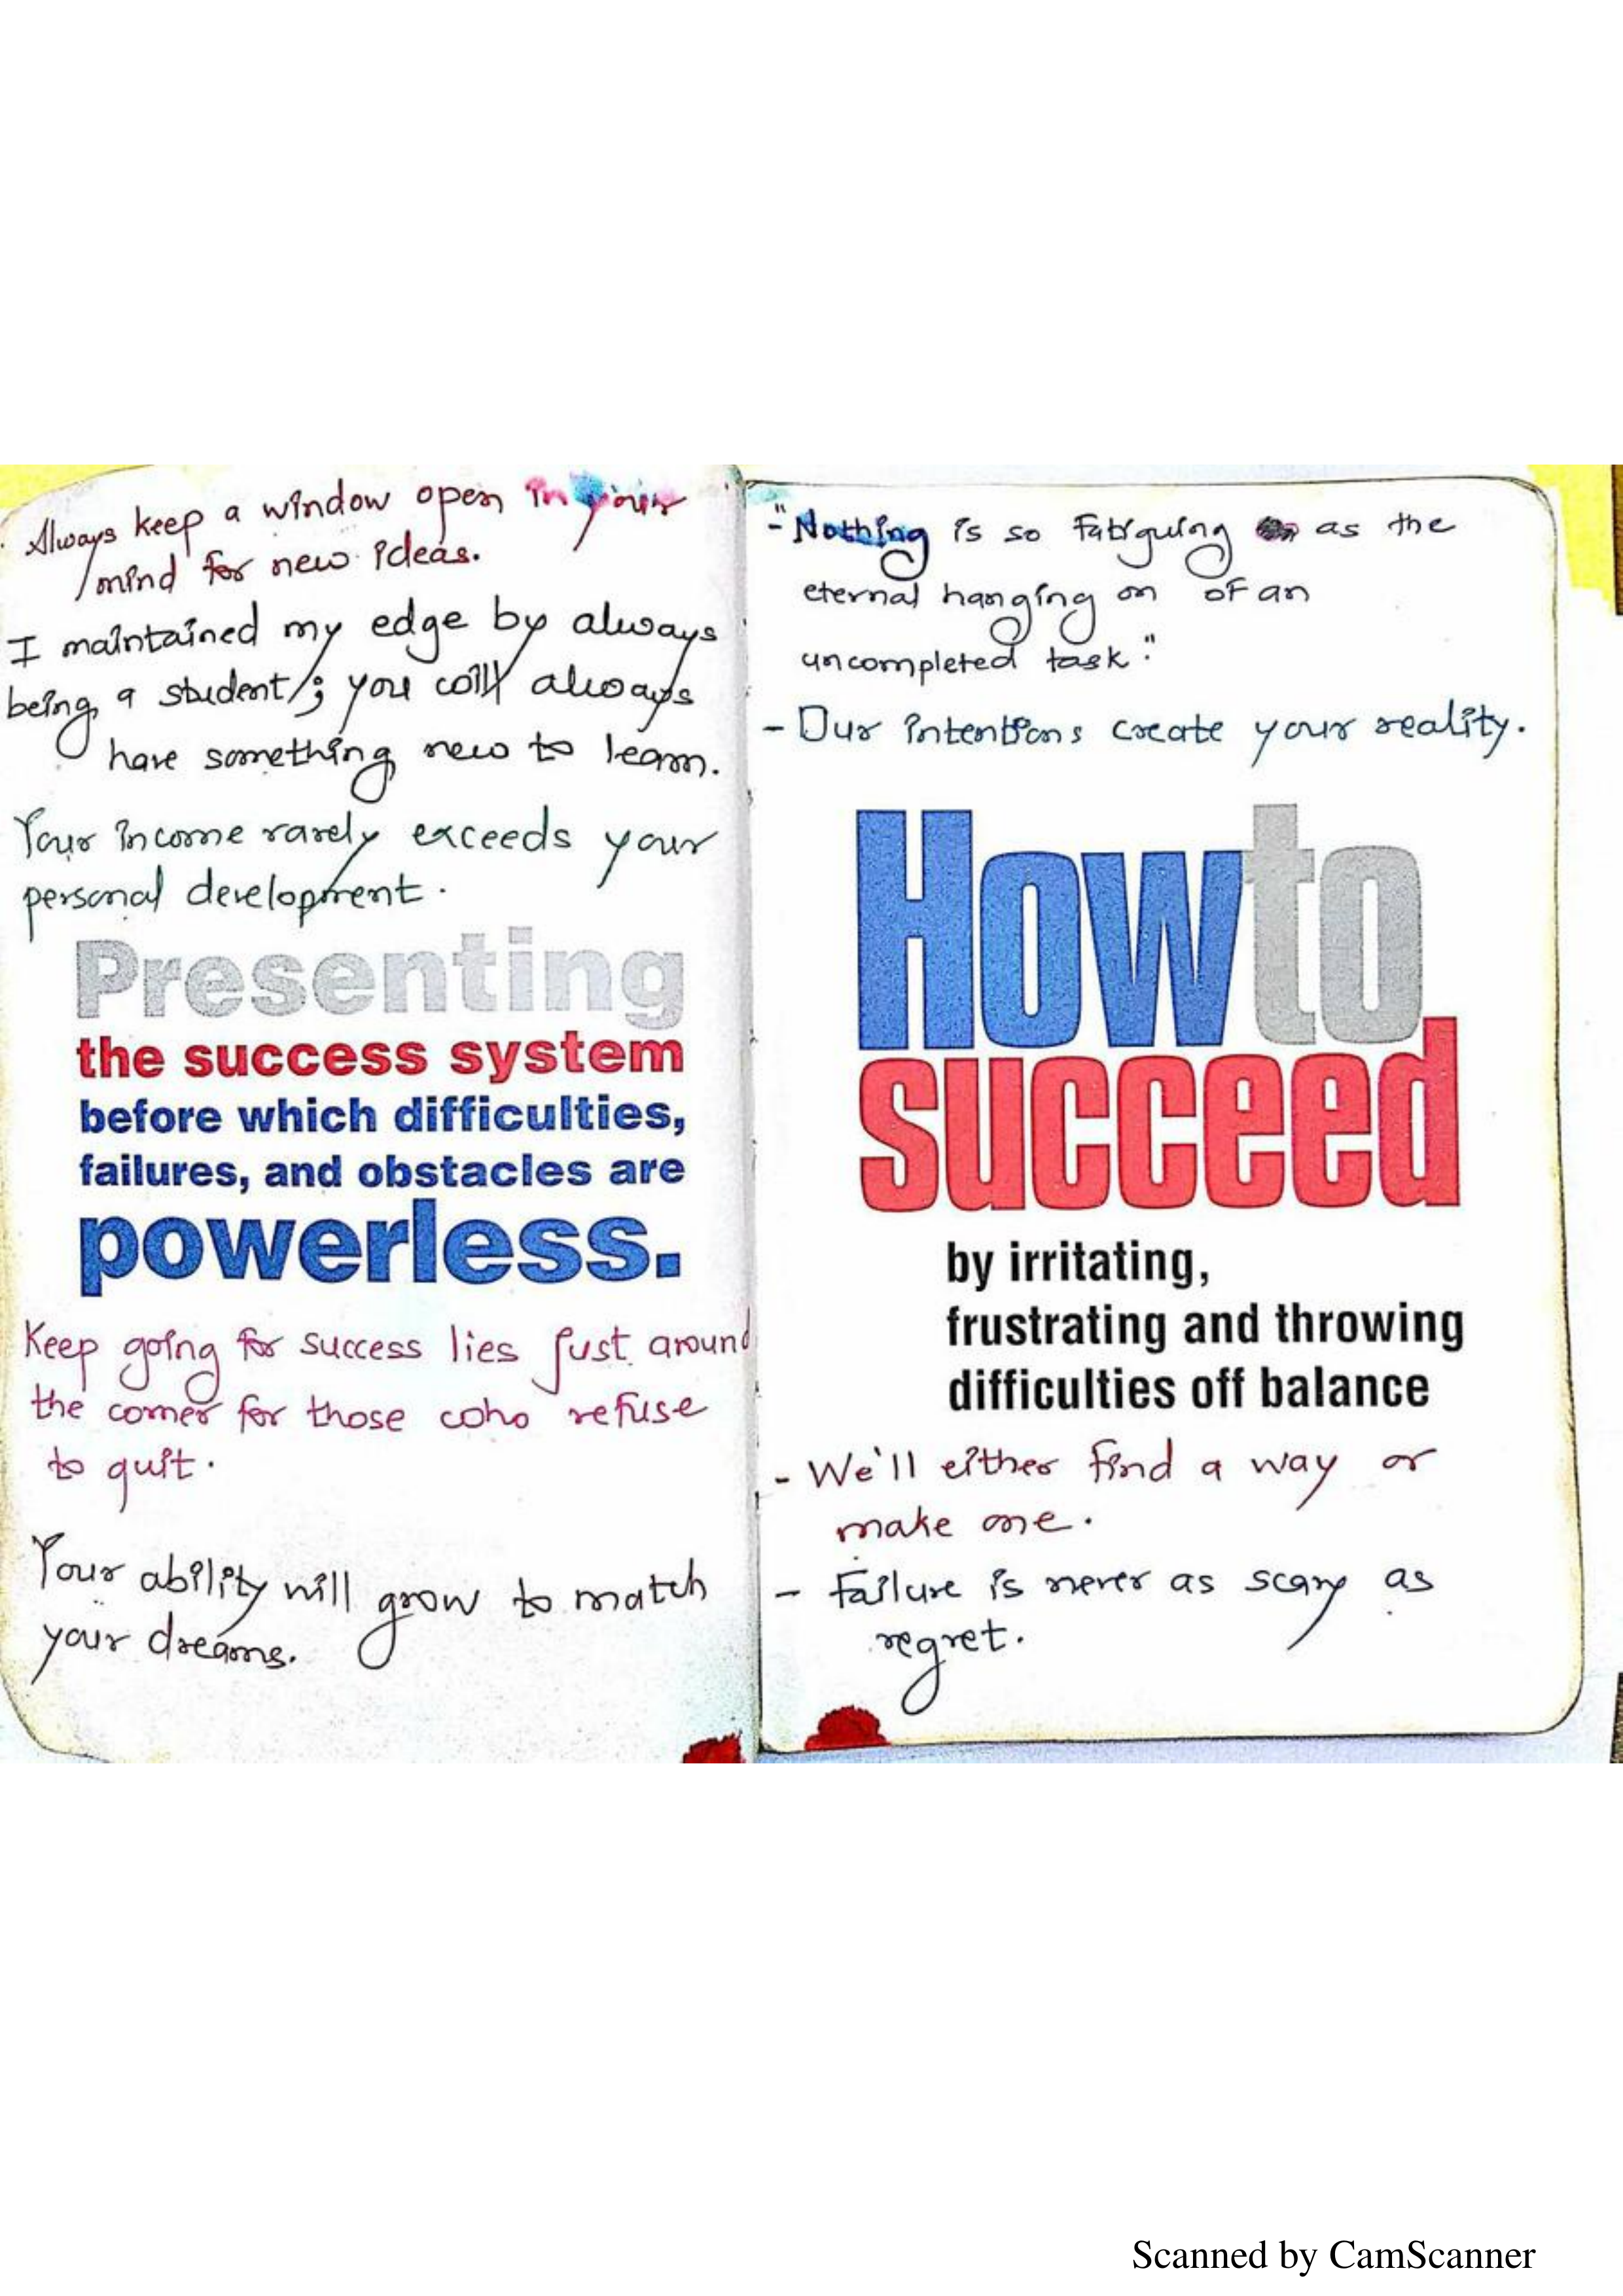 Always keep a window open in your
mind for new ideas.
I maintained my edge by always
being a student; you will always
have something new to learn.
Your income rarely exceeds your
personal development.
Presenting
the success system
before which difficulties,
failures, and obstacles are
powerless.
Keep going for success lies just around
the corner for those who refuse
to quit.
Your ability will grow to match
your dreams.
- "Nothing is so fatiguing as the
eternal hanging on of an
uncompleted task."
- Our intentions create your reality.
How to
succeed
by irritating,
frustrating and throwing
difficulties off balance
- We'll either find a way or
make one.
- Failure is never as scary as
regret.
Scanned by CamScanner